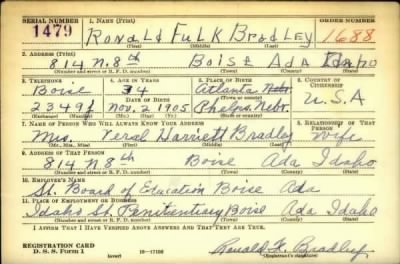 SERIAL NUMBER 1. NAME (Print) ORDER NUMBER
1479 Ronald Fulk Bradley 1688
(First) (Middle) (Last)
2. ADDRESS (Print)
814 N. 8th Boise Ada Idaho
(Number and street or R. F. D. number) (Town) (County) (State)
3. TELEPHONE 4. AGE IN YEARS 5. PLACE OF BIRTH 6. COUNTRY OF CITIZENSHIP
Boise 34 Atlanta Nebr.
DATE OF BIRTH (Town or county) U.S.A
2349J Nov. 2 1905 Phelps, Nebr.
(Exchange) (Number) (Mo.) (Day) (Yr.) (State or country)
7. NAME OF PERSON WHO WILL ALWAYS KNOW YOUR ADDRESS 8. RELATIONSHIP OF THAT PERSON
Mrs. Veral Harriett Bradley Wife
(Mr., Mrs., Miss) (First) (Middle) (Last)
9. ADDRESS OF THAT PERSON
814 N 8th Boise Ada Idaho
(Number and street or R. F. D. number) (Town) (County) (State)
10. EMPLOYER'S NAME
St. Board of Education Boise Ada
11. PLACE OF EMPLOYMENT OR BUSINESS
Idaho St. Penitentiary Boise Ada Idaho
(Number and street or R. F. D. number) (Town) (County) (State)
I AFFIRM THAT I HAVE VERIFIED ABOVE ANSWERS AND THAT THEY ARE TRUE.
REGISTRATION CARD
D. S. S. Form 1 (over) 16—17105 Ronald F. Bradley
(Registrant's signature)